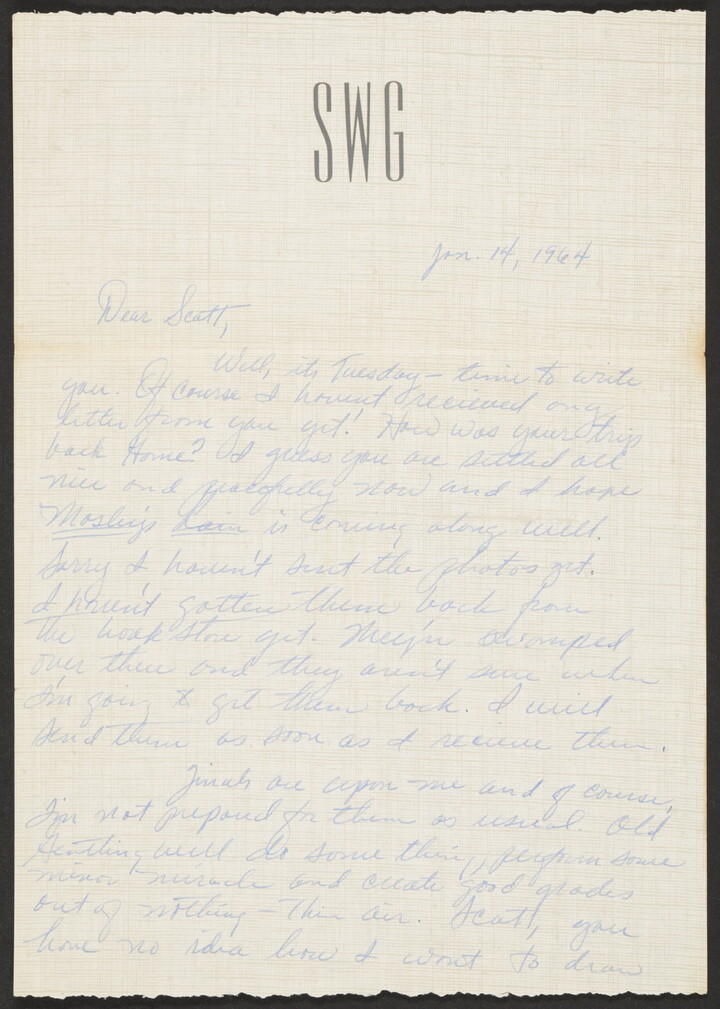 SWG
Jan. 14, 1964
Dear Scott,
Well, its Tuesday – time to write
you. Of course I haven't recieved any
letter from you yet! How was your trip
back Home? I guess you are settled all
nice and peacefully now and I hope
Mosley's Lair is coming along well.
Sorry I haven't sent the photos yet.
I haven't gotten them back from
the book store yet. They're swamped
over there and they aren't sure when
I'm going to get them back. I will
send them as soon as I recieve them.
Finals are upon me and of course,
I'm not prepared for them as usual. Old
will do something, perform some
minor miracle and create good grades
out of nothing – thin air. Scott, you
have no idea how I want to draw